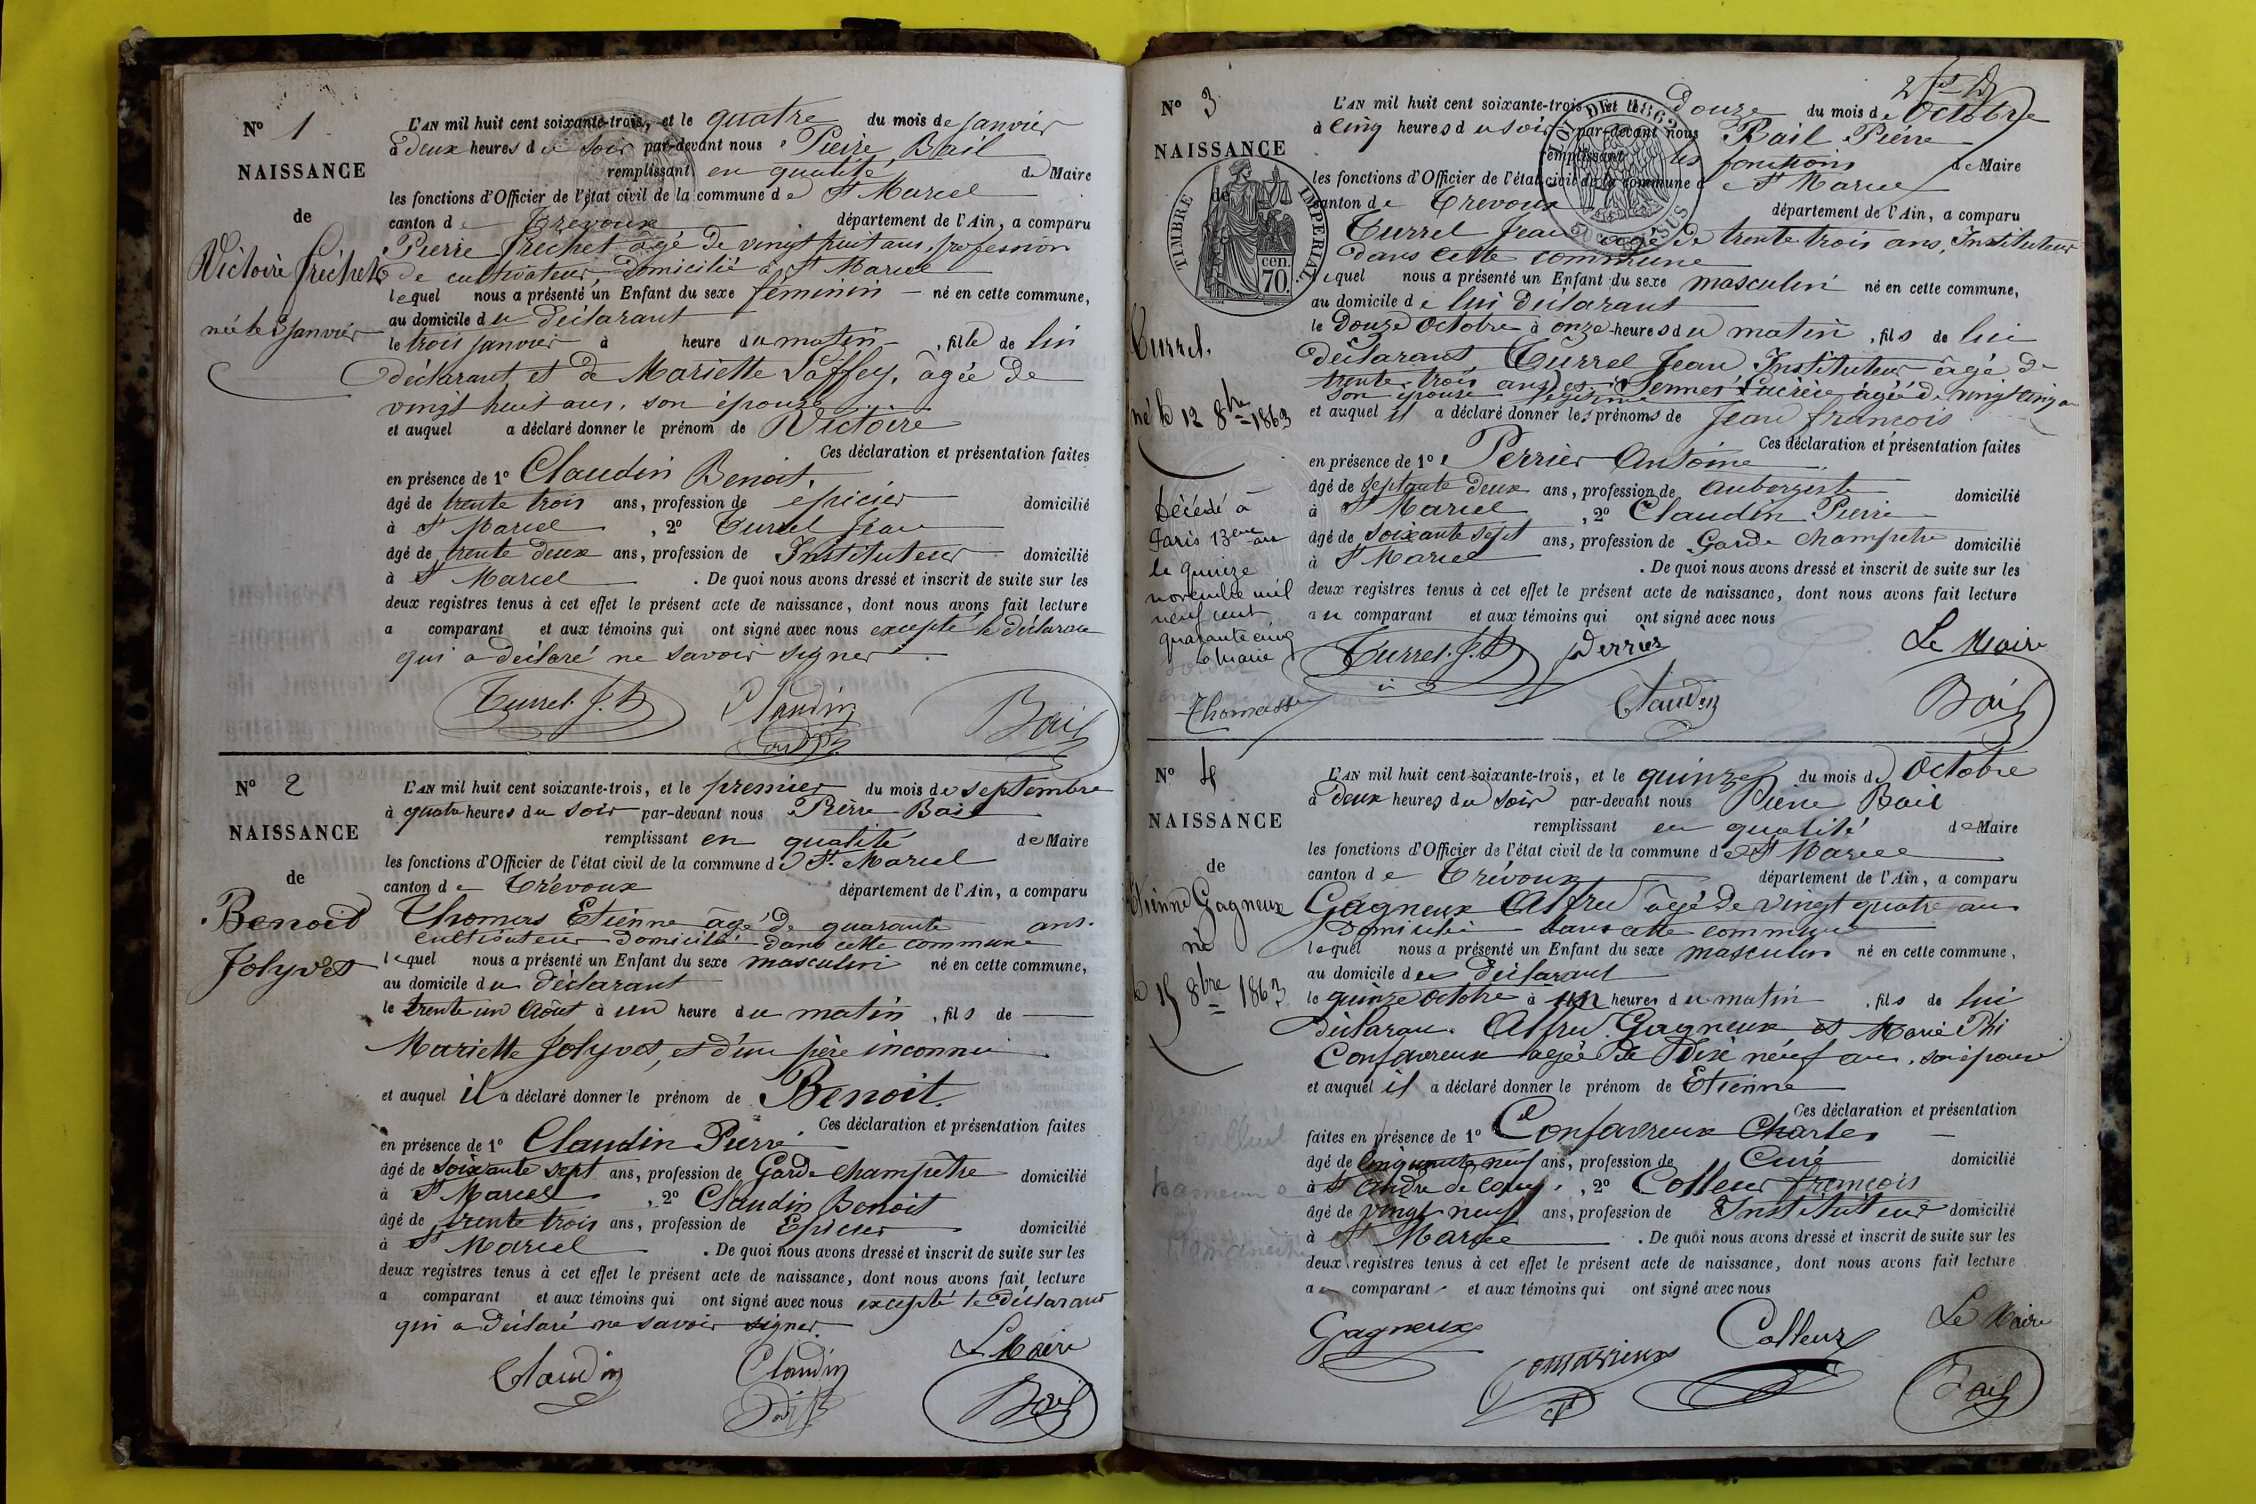 N° 1
NAISSANCE
de
Victoire fréchet
née le 3 janvier
L'AN mil huit cent soixante-trois, et le quatre du mois de janvier
à deux heures du soir par-devant nous Pierre Bail
remplissant en qualité de Maire
les fonctions d'Officier de l'état civil de la commune de St Marcel
canton de Trévoux département de l'Ain, a comparu
Pierre fréchet âgé de vingt huit ans, profession
de cultivateur domicilié à St Marcel
lequel nous a présenté un Enfant du sexe féminin né en cette commune,
au domicile du déclarant
le trois janvier à heure du matin, fille de lui
déclarant et de Mariette âgée de
vingt huit ans, son épouse
et auquel a déclaré donner le prénom de Victoire
Ces déclaration et présentation faites
en présence de 1° Claudin Benoit,
âgé de trente trois ans, profession de épicier domicilié
à St Marcel, 2° Turrel Jean
âgé de trente deux ans, profession de Instituteur domicilié
à St Marcel. De quoi nous avons dressé et inscrit de suite sur les
deux registres tenus à cet effet le présent acte de naissance, dont nous avons fait lecture
a comparant et aux témoins qui ont signé avec nous excepté le déclarant
qui a déclaré ne savoir signer.
Turrel J. B Claudin Bail
N° 2
NAISSANCE
de
Benoit
Jolyvet
L'AN mil huit cent soixante-trois, et le premier du mois de septembre
à quatre heures du soir par-devant nous Pierre Bail
remplissant en qualité de Maire
les fonctions d'Officier de l'état civil de la commune de St Marcel
canton de Trévoux département de l'Ain, a comparu
Thomas Etienne âgé de quarante ans.
cultivateur domicilié dans cette commune
lequel nous a présenté un Enfant du sexe masculin né en cette commune,
au domicile du déclarant
le trente un Août à un heure du matin, fils de
Mariette Jolyvet, et d'un père inconnu
et auquel il a déclaré donner le prénom de Benoit.
Ces déclaration et présentation faites
en présence de 1° Claudin Pierre
âgé de soixante sept ans, profession de Garde champêtre domicilié
à St Marcel, 2° Claudin Benoit
âgé de trente trois ans, profession de Epicier domicilié
à St Marcel. De quoi nous avons dressé et inscrit de suite sur les
deux registres tenus à cet effet le présent acte de naissance, dont nous avons fait lecture
a comparant et aux témoins qui ont signé avec nous excepté le déclarant
qui a déclaré ne savoir signer.
Le Maire
Claudin Claudin Bail
N° 3
NAISSANCE
de
TIMBRE IMPERIAL.
cen.
70.
Turrel.
né le 12 8bre 1863
Décédé à
Paris 13eme arr
le quinze
novembre mil
neuf cent
quarante cinq
Le Maire
Thomas
L'AN mil huit cent soixante-trois et le douze du mois de Octobre
à cinq heures du soir par-devant nous Bail Pierre
remplissant les fonctions de Maire
les fonctions d'Officier de l'état civil de la commune de St Marcel
canton de Trevoux département de l'Ain, a comparu
Turrel Jean âgé de trente trois ans, Instituteur
dans cette commune
lequel nous a présenté un Enfant du sexe masculin né en cette commune,
au domicile de lui déclarant
le douze Octobre à onze heures du matin, fils de lui
déclarant Turrel Jean Instituteur âgé de
trente trois ans, et Lucrèce âgée de vingt cinq
son épouse légitime
et auquel il a déclaré donner les prénoms de Jean françois
Ces déclaration et présentation faites
en présence de 1° Perrier Antoine
âgé de septante deux ans, profession de Aubergiste domicilié
à St Marcel, 2° Claudin Pierre
âgé de soixante sept ans, profession de Garde champetre domicilié
à St Marcel. De quoi nous avons dressé et inscrit de suite sur les
deux registres tenus à cet effet le présent acte de naissance, dont nous avons fait lecture
au comparant et aux témoins qui ont signé avec nous
Le Maire
Turrel. J. B Perrier Claudin Bail
N° 4
NAISSANCE
de
Etienne Gagneux
né
le 15 8bre 1863
L'AN mil huit cent soixante-trois, et le quinze du mois de Octobre
à deux heures du soir par-devant nous Pierre Bail
remplissant en qualité de Maire
les fonctions d'Officier de l'état civil de la commune de St Marcel
canton de Trévoux département de l'Ain, a comparu
Gagneux Alfred âgé de vingt quatre ans
Domicilié dans cette commune
lequel nous a présenté un Enfant du sexe masculin né en cette commune,
au domicile du déclarant
le quinze octobre à un heures du matin, fils de lui
déclarant. Alfred Gagneux et Marie Phi
Confavreux âgée de Dix neuf ans, son épouse
et auquel il a déclaré donner le prénom de Etienne
Ces déclaration et présentation
faites en présence de 1° Confavreux Charles
âgé de cinquante neuf ans, profession de Curé domicilié
à St André de Corcy, 2° Colleur françois
âgé de vingt neuf ans, profession de Instituteur domicilié
à St Marcel. De quoi nous avons dressé et inscrit de suite sur les
deux registres tenus à cet effet le présent acte de naissance, dont nous avons fait lecture
au comparant et aux témoins qui ont signé avec nous
Le Maire
Gagneux Confavreux Colleur Bail